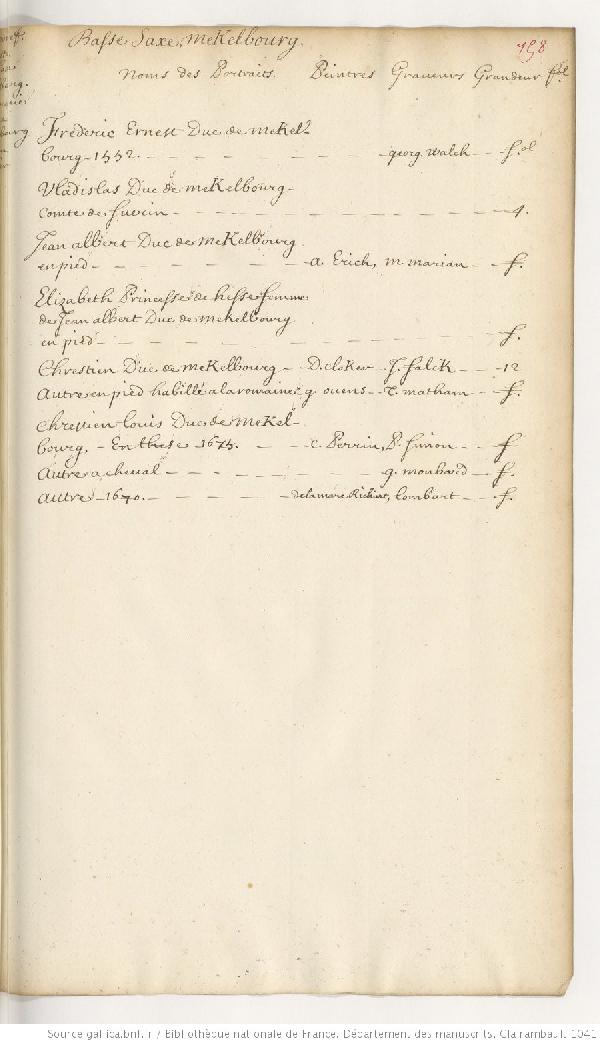 Basse Saxe, meKelbourg. 758
Noms des Portraits. Peintres Graveurs Grandeur
Frederic Ernest Duc de meKel-
bourg - 1552. georg. Walch f.ol
Vladislas Duc de meKelbourg -
Comte de Suerin 4.
Jean albert Duc de meKelbourg
en pied a. Erich, m. marian f.
Elizabeth Princesse de hesse femme
de Jean albert Duc de mekelbourg
en pied f.
Chrestien Duc de meKelbourg D. cloker J. falck 12
Autre en pied habillé a la romaine g. ouens T. matham f.
Chrestien louis Duc de meKel-
bourg. - En these 1675. c. Perrin, P. simon f
Autre a cheual g. mouhard f.
Autre - 1670. delamare Richart, lombart f.
Source gallica.bnf.fr / Bibliothèque nationale de France. Département des manuscrits. Clairambault 1041